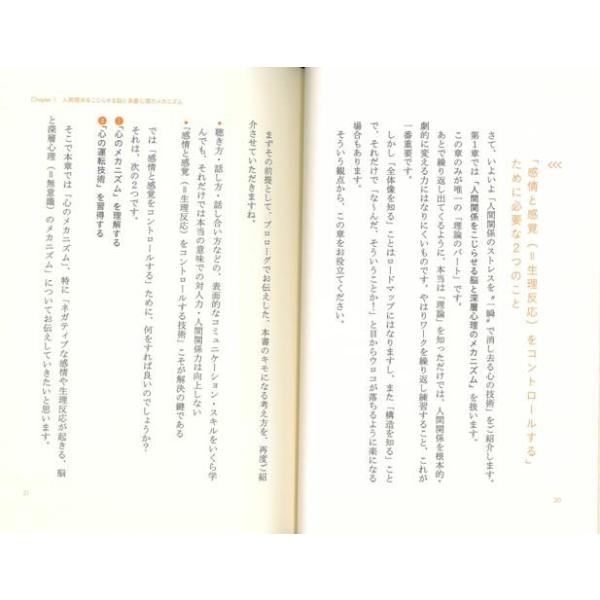 「感情と感覚（＝生理反応）をコントロールする」
ために必要な２つのこと
さて、いよいよ「人間関係のストレスを〝一瞬〟で消し去る心の技術」をご紹介します。
第１章では「人間関係をこじらせる脳と深層心理のメカニズム」を扱います。
この章のみが唯一の「理論のパート」です。
あとで繰り返し出てくるように、本当は「理論」を知っただけでは、人間関係を根本的・
劇的に変える力にはなりにくいものです。やはりワークを繰り返し練習すること、これが
一番重要です。
しかし「全体像を知る」ことはロードマップにはなりますし、また「構造を知る」こと
で、それだけで「な〜んだ、そういうことか！」と目からウロコが落ちるように楽になる
場合もあります。
そういう観点から、この章をお役立てください。
20
Chapter 1 人間関係をこじらせる脳と深層心理のメカニズム
まずその前提として、プロローグでお伝えした、本書のキモになる考え方を、再度ご紹
介させていただきますね。
・聴き方・話し方・話し合い方などの、表面的なコミュニケーション・スキルをいくら学
んでも、それだけでは本当の意味での対人力・人間関係力は向上しない
・「感情と感覚（＝生理反応）をコントロールする技術」こそが解決の鍵である
では「感情と感覚をコントロールする」ために、何をすれば良いのでしょうか？
それは、次の２つです。
❶「心のメカニズム」を理解する
❷「心の運転技術」を習得する
そこで本章では「心のメカニズム」、特に「ネガティブな感情や生理反応が起きる、脳
と深層心理（＝無意識）のメカニズム」についてお伝えしていきたいと思います。
21